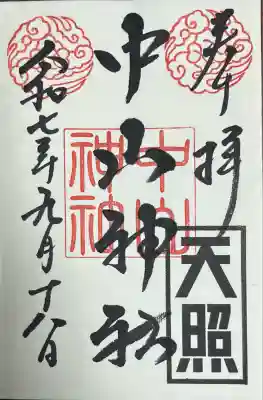 奉拝
中山神社
中山神社
天照
令和七年九月十八日